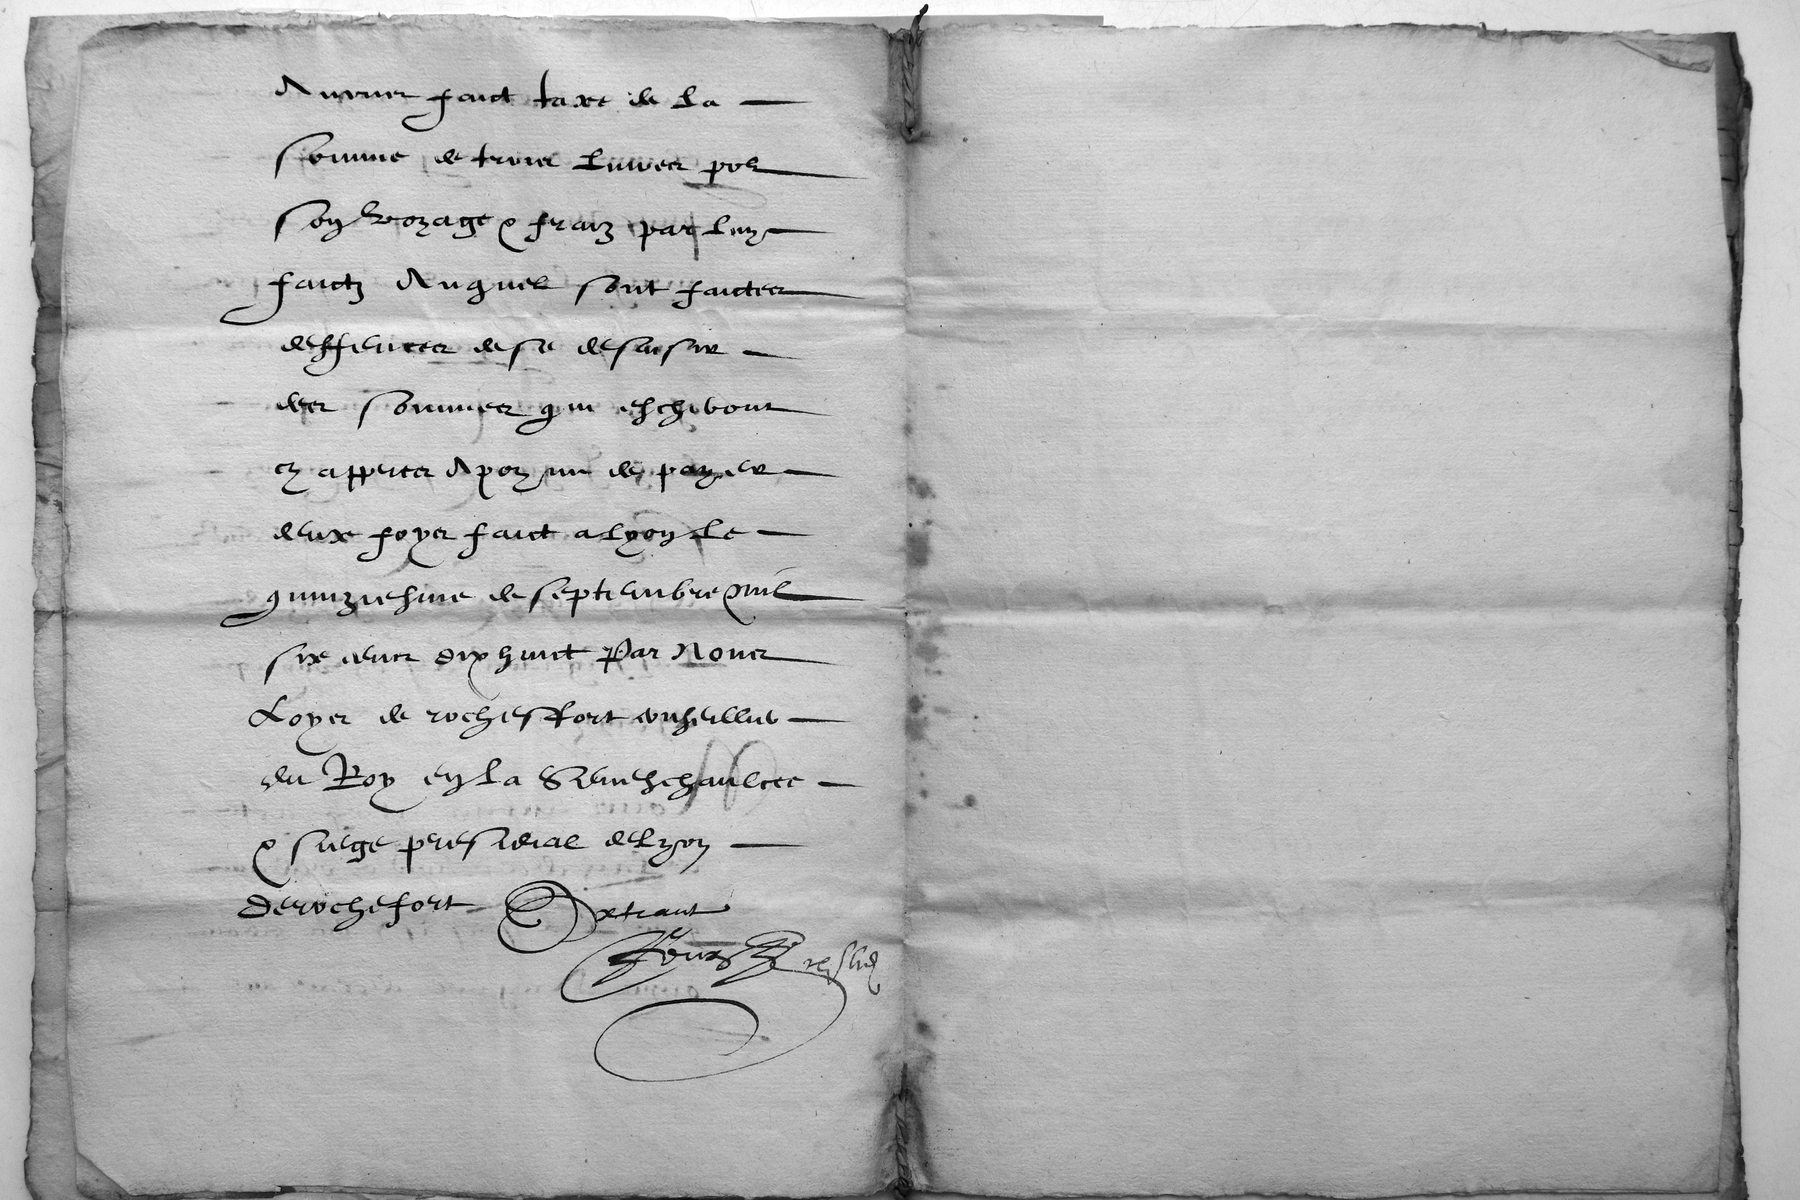 Avons faict taxe de la
somme de trois livres por
son voyage & fraiz par luy
faictz Auquel sont faictes
deffences de se desaisir
des sommes qui escheront
cy appres A peyne de payer
deux foys faict a Lyon le
quinziesme de septembre mil
six cens dix huict Par Nous
Loys de rocheffort conseiller
du Roy en la Seneschaulcee
& siege presidial de Lyon
De rochefort Extraict